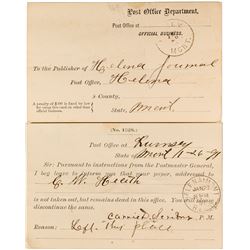 Post Office Department,
Post Office at
OFFICIAL BUSINESS.
MONT.
To the Publisher of Helena Journal
Post Office, Helena
County,
State, Mont.
A penalty of $300 is fixed by law
for using this card for other than
official business.
(No. 1528.)
Post Office at Rumsey
State of Mont 1-26-91
Sir: Pursuant to instructions from the Postmaster General, I
beg leave to inform you that your paper, addressed to
C. W. Heath
is not taken out, but remains dead in this office. You will please
discontinue the same.
P. M.
Reason: Left this place